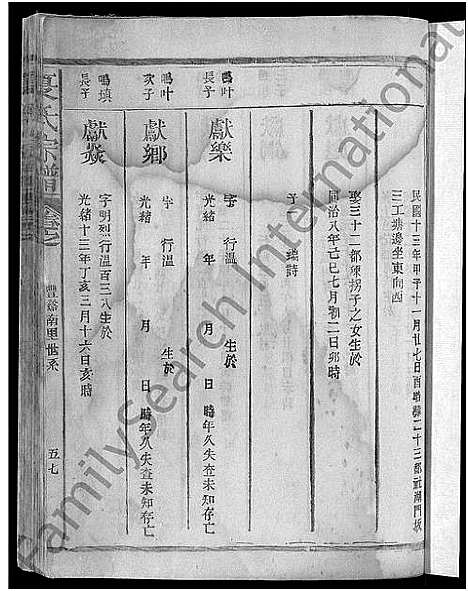 民國十三年甲子十一月廿七日酉時葬二十三都社湖門坂
三工塘邊坐東向西
娶三十二都陳拐子之女生於
同治八年己巳七月初二日卯時
子一 繼詩
鳴叶
長子
獻樂
字 行溫 生於
光緒 年 月 日 時年久失查未知存亡
鳴叶
次子
獻鄉
字 行溫 生於
光緒 年 月 日 時年久失查未知存亡
鳴填
長子
獻焱
字明烈行溫百三八生於
光緒十三年丁亥三月十六日亥時
夏氏宗譜
豐谿南里世系
五七
FamilySearch International